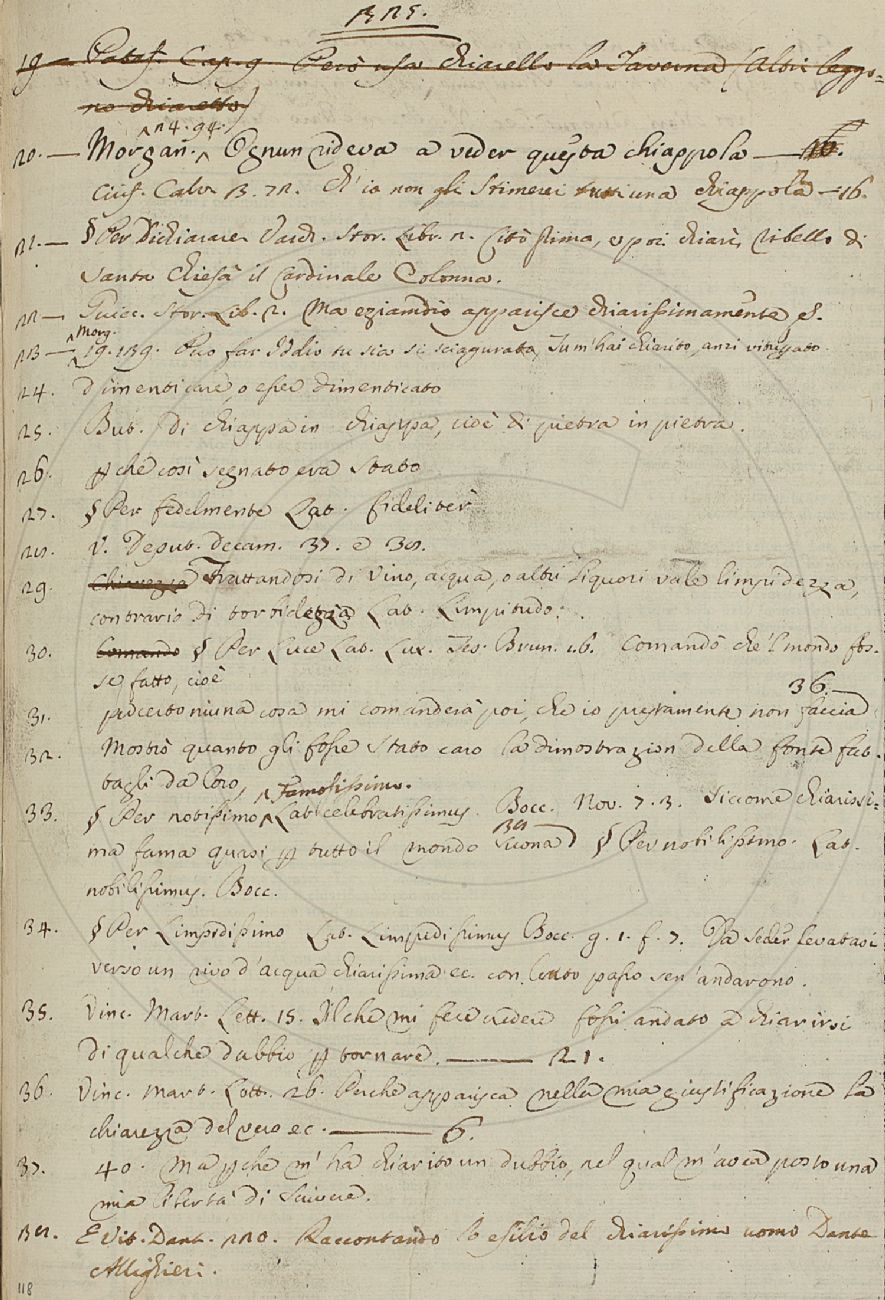 325.
19 — Pataf. Cap. 9 Però usa chiarello la Taverna (Altri leggo=
no chiaretto)
24. 94.
20. — Morgan. Ognun rideva a veder questa chiappola — 16.
Ciriff. Calv. 3. 72. Ch'io non gli stimerei tutti una chiappola — 16.
21. — § Per Dichiarare. Vard. Stor. Libr. 2. Citò prima, e poi chiarì, ribello di
Santa Chiesa il Cardinale Colonna.
22 — Guicc. Stor. Lib. 2. Ma eziamdio apparisce chiarissimamente, ec.
Morg.
23 — 19. 139. Può far Iddio tu sia sì sciagurata, Tu m'hai chiarito, anzi vituperato
24. Dimenticare, o esser dimenticato
25. But. Di chiappa in chiappa, cioè di pietra in pietra.
26. pchè così segnato era stato
27. § Per fedelmente Lat. fideliter
28. V. Deput. Decam. 37. e 38.
29. Chiarezza Trattandosi di Vino, acqua, o altri liquori vale limpidezza,
contrario di torbidezza Lat. Limpitudo.
30. Comando § Per Luce Lat. Lux. Tes. Brun. 1. 6. Comandò che 'l mondo fos-
se fatto, cioè
36. —
31. p certo niuna cosa mi comanderà poi, che io prestamente non faccia
32. Mostrò quanto gli fosse stato caro la dimostrazion della fonte fat-
tagli da loro,
Famosissimo.
33. § Per notissimo, Lat. celebratissimus. Bocc. Nov. 7. 3. Siccome chiarissi=
38 —
ma fama quasi p tutto il mondo suona § Per nobilissimo. Lat.
nobilissimus. Bocc.
34. § Per Limpidissimo Lat. Limpidissimus Bocc. g. 1. f. 7. Da seder levatasi
verso un rivo d'acqua chiarissima ec. con lento passo sen' andarono.
35. Vinc. Mart. Lett. 15. Il che mi fece credere fossi andato a chiarirsi
di qualche dubbio p tornare. — 21.
36. Vinc. Mart. Lett. 26. Perche apparisca nella mia giustificazione la
chiarezza del vero ec. — 6.
37. 40. Ma pche m'ha chiarito un dubbio, nel qual m'avea posto una
mia libertà di scrivere.
38. E Vit. Dant. 220. Raccontando lo esilio del chiarissimo uomo Dante
Allighieri.
118